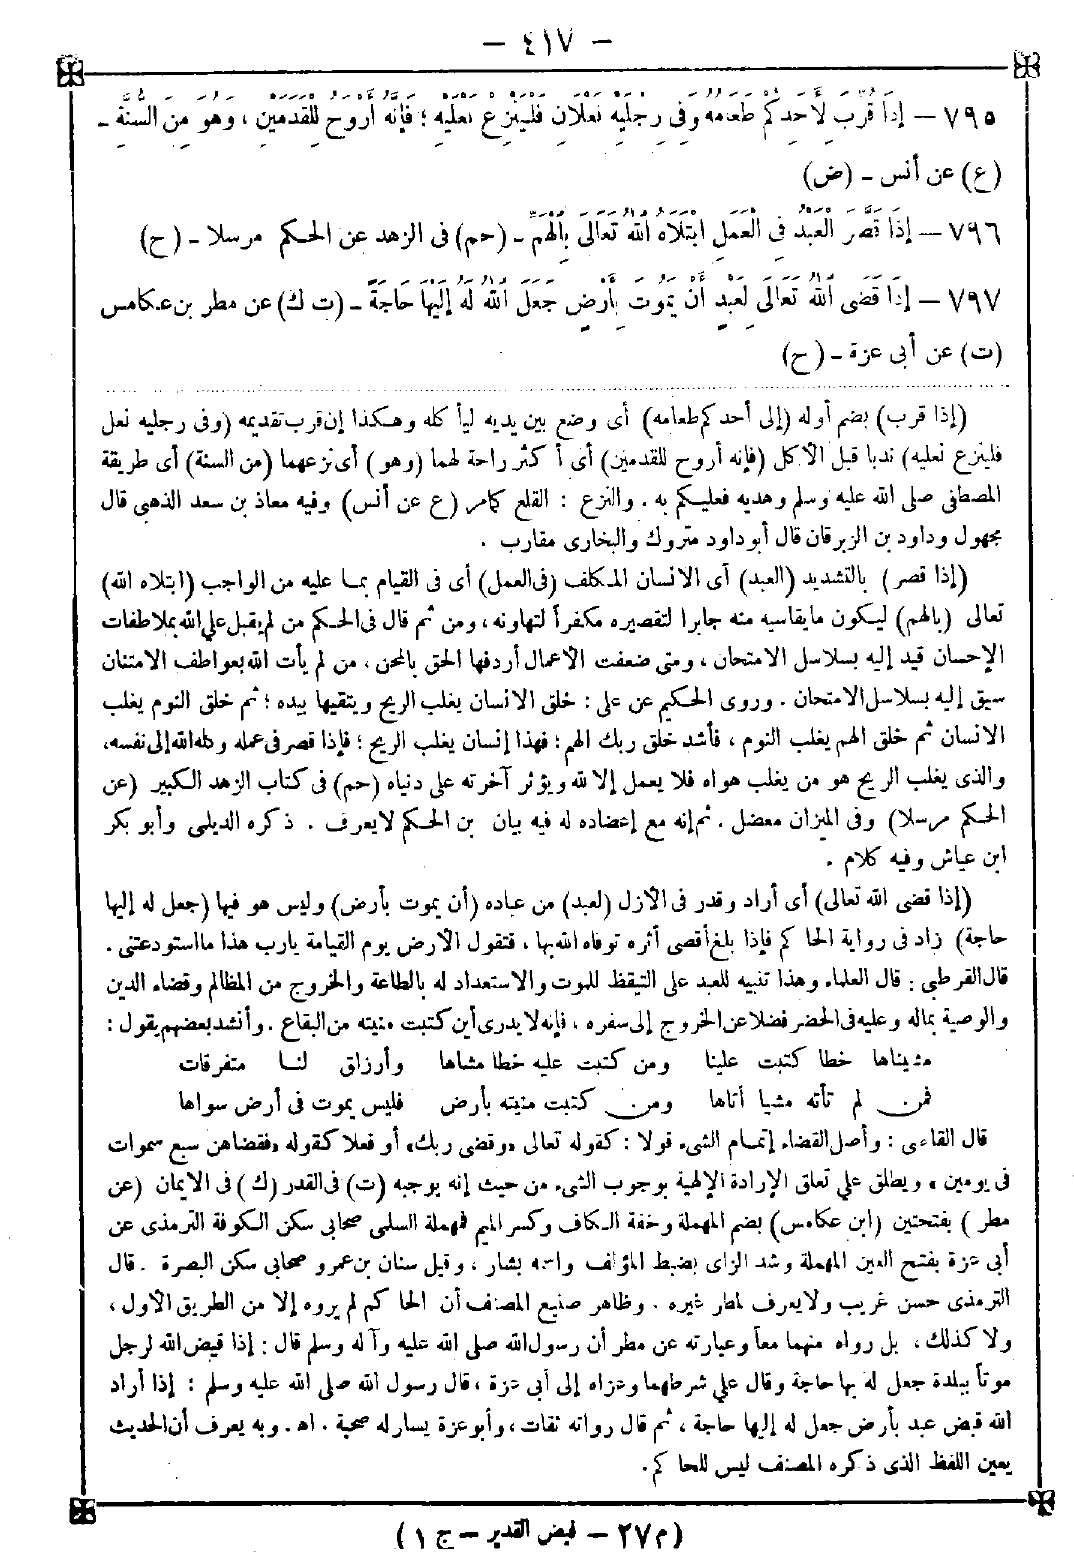 – ٤١٧ –
٧٩٥ – إِذَا قُرِّبَ لِأَحَدِكُمْ طَعَامُهُ وَفِى رِجْلَيْهِ نَعْلَانِ فَلْيَنْزِعْ نَعْلَيْهِ ؛ فَإِنَّهُ أَرْوَحُ لِلْقَدَمَيْنِ ، وَهُوَ مِنَ السُّنَّةِ –
(ع) عن أنس – (ض)
٧٩٦ – إِذَا قَصَّرَ الْعَبْدُ فِى الْعَمَلِ ابْتَلَاهُ اللهُ تَعَالَى بِالْهَمِّ – (حم) فى الزهد عن الحكم مرسلا – (ح)
٧٩٧ – إِذَا قَضَى اللهُ تَعَالَى لِعَبْدٍ أَنْ يَمُوتَ بِأَرْضٍ جَعَلَ اللهُ لَهُ إِلَيْهَا حَاجَةً – (ت ك) عن مطر بن عكامس
(ت) عن أبى عزة – (ح)
(إذا قرب) بضم أوله (إلى أحدكم طعامه) أى وضع بين يديه ليأكله وهكذا إن قرب تقديمه (وفى رجليه نعل
فلينزع نعليه) ندبا قبل الأكل (فإنه أروح للقدمين) أى أكثر راحة لهما (وهو) أى نزعهما (من السنة) أى طريقة
المصطفى صلى الله عليه وسلم وهديه فعليكم به . والنزع : القلع كمامر (ع عن أنس) وفيه معاذ بن سعد الذهبى قال
مجهول وداود بن الزبرقان قال أبو داود متروك والبخارى مقارب .
(إذا قصر) بالتشديد (العبد) أى الانسان المكلف (فى العمل) أى فى القيام بما عليه من الواجب (ابتلاه الله)
تعالى (بالهم) ليكون مايقاسيه منه جابرا لتقصيره مكفراً لتهاونه ، ومن ثم قال فى الحكم من لم يقبل على الله بملاطفات
الإحسان قيد إليه بسلاسل الامتحان ، ومتى ضعفت الأعمال أردفها الحق بالمحن ، من لم يأت الله بعواطف الامتنان
سيق إليه بسلاسل الامتحان . وروى الحكيم عن على : خلق الانسان يغلب الريح ويتقيها بيده ؛ ثم خلق النوم يغلب
الانسان ثم خلق الهم يغلب النوم ، فأشد خلق ربك الهم : فهذا إنسان يغلب الريح ؛ فإذا قصر فى عمله وكله الله إلى نفسه،
والذى يغلب الريح هو من يغلب هواه فلا يعمل إلا لله ويؤثر آخرته على دنياه (حم) فى كتاب الزهد الكبير (عن
الحكم مرسلا) وفى الميزان معضل . ثم إنه مع إعضاده له فيه بيان بن الحكم لايعرف . ذكره الديلمى وأبو بكر
ابن عياش وفيه كلام .
(إذا قضى الله تعالى) أى أراد وقدر فى الأزل (لعبد) من عباده (أن يموت بأرض) وليس هو فيها (جعل له إليها
حاجة) زاد فى رواية الحاكم فإذا بلغ أقصى أثره توفاه الله بها ، فتقول الأرض يوم القيامة يارب هذا ما استودعتنى .
قال القرطبى : قال العلماء وهذا تنبيه للعبد على التيقظ للموت والاستعداد له بالطاعة والخروج من المظالم وقضاء الدين
والوصية بماله وعليه فى الحضر فضلا عن الخروج إلى سفره ، فإنه لا يدرى أين كتبت منيته من البقاع . وأنشد بعضهم يقول :
مشيناها خطا كتبت علينا ومن كتبت عليه خطا مشاها وأرزاق لنا متفرقات
فمن لم تأته مشيا أتاها ومن كتبت منيته بأرض فليس يموت فى أرض سواها
قال القاضى : وأصل القضاء إتمام الشىء قولا : كقوله تعالى «وقضى ربك» أو فعلا كقوله «فقضاهن سبع سموات
فى يومين» ويطلق على تعلق الإرادة الإلهية بوجوب الشىء من حيث إنه يوجبه (ت) فى القدر (ك) فى الايمان (عن
مطر) بفتحتين (ابن عكامس) بضم المهملة وخفة الكاف وكسر الميم فمهملة السلمى صحابى سكن الكوفة الترمذى عن
أبى عزة بفتح العين المهملة وشد الزاى بضبط المؤلف واسمه بشار ، وقيل سنان بن عمرو صحابى سكن البصرة . قال
الترمذى حسن غريب ولا يعرف لمطر غيره . وظاهر صنيع المصنف أن الحاكم لم يروه إلا من الطريق الأول ،
ولا كذلك ، بل رواه منهما معاً وعبارته عن مطر أن رسول الله صلى الله عليه وآله وسلم قال : إذا قيض الله لرجل
موتاً ببلدة جعل له بها حاجة وقال على شرطهما وعزاه إلى أبى عزة ، قال رسول الله صلى الله عليه وسلم : إذا أراد
الله قبض عبد بأرض جعل له إليها حاجة ، ثم قال رواته ثقات ، وأبو عزة يسار له صحبة . اه . وبه يعرف أن الحديث
بعين اللفظ الذى ذكره المصنف ليس للحاكم .
(م ٢٧ – فيض القدير – ج ١)